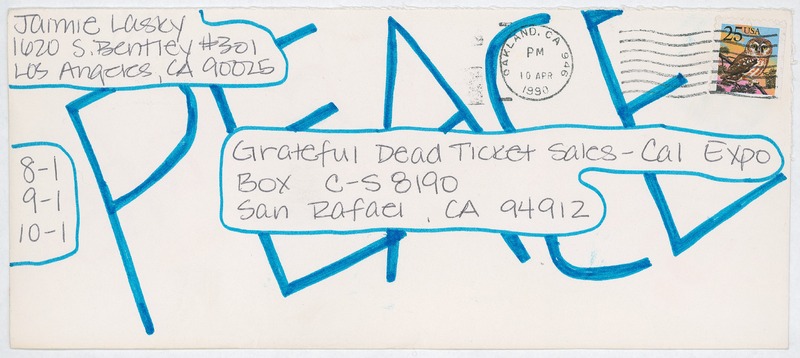 Jaimie Lasky
1620 S. Bentley #301
Los Angeles, CA 90025
PEACE
OAKLAND, CA 946
PM
10 APR
1990
25 USA
Grateful Dead Ticket Sales - Cal Expo
Box C-S 8190
San Rafael, CA 94912
8-1
9-1
10-1